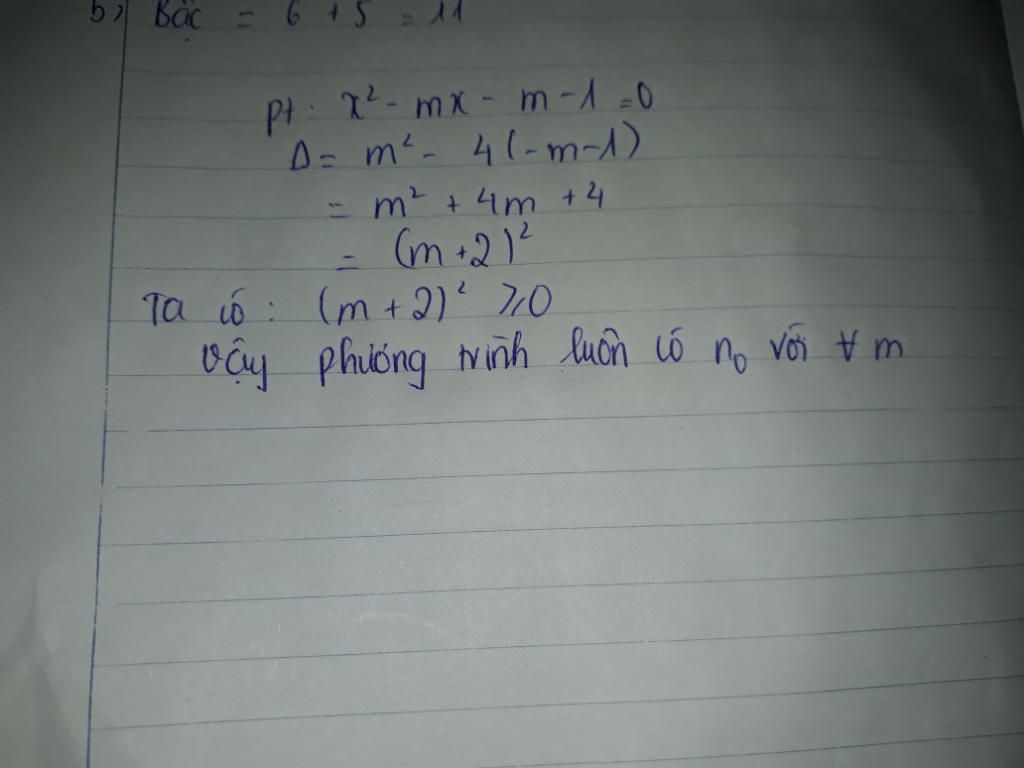 b, Bậc = 6 + 5 = 11
pt: x² - mx - m - 1 = 0
Δ = m² - 4(-m-1)
= m² + 4m + 4
= (m+2)²
Ta có: (m + 2)² ⩾ 0
vậy phương trình luôn có n₀ với ∀ m